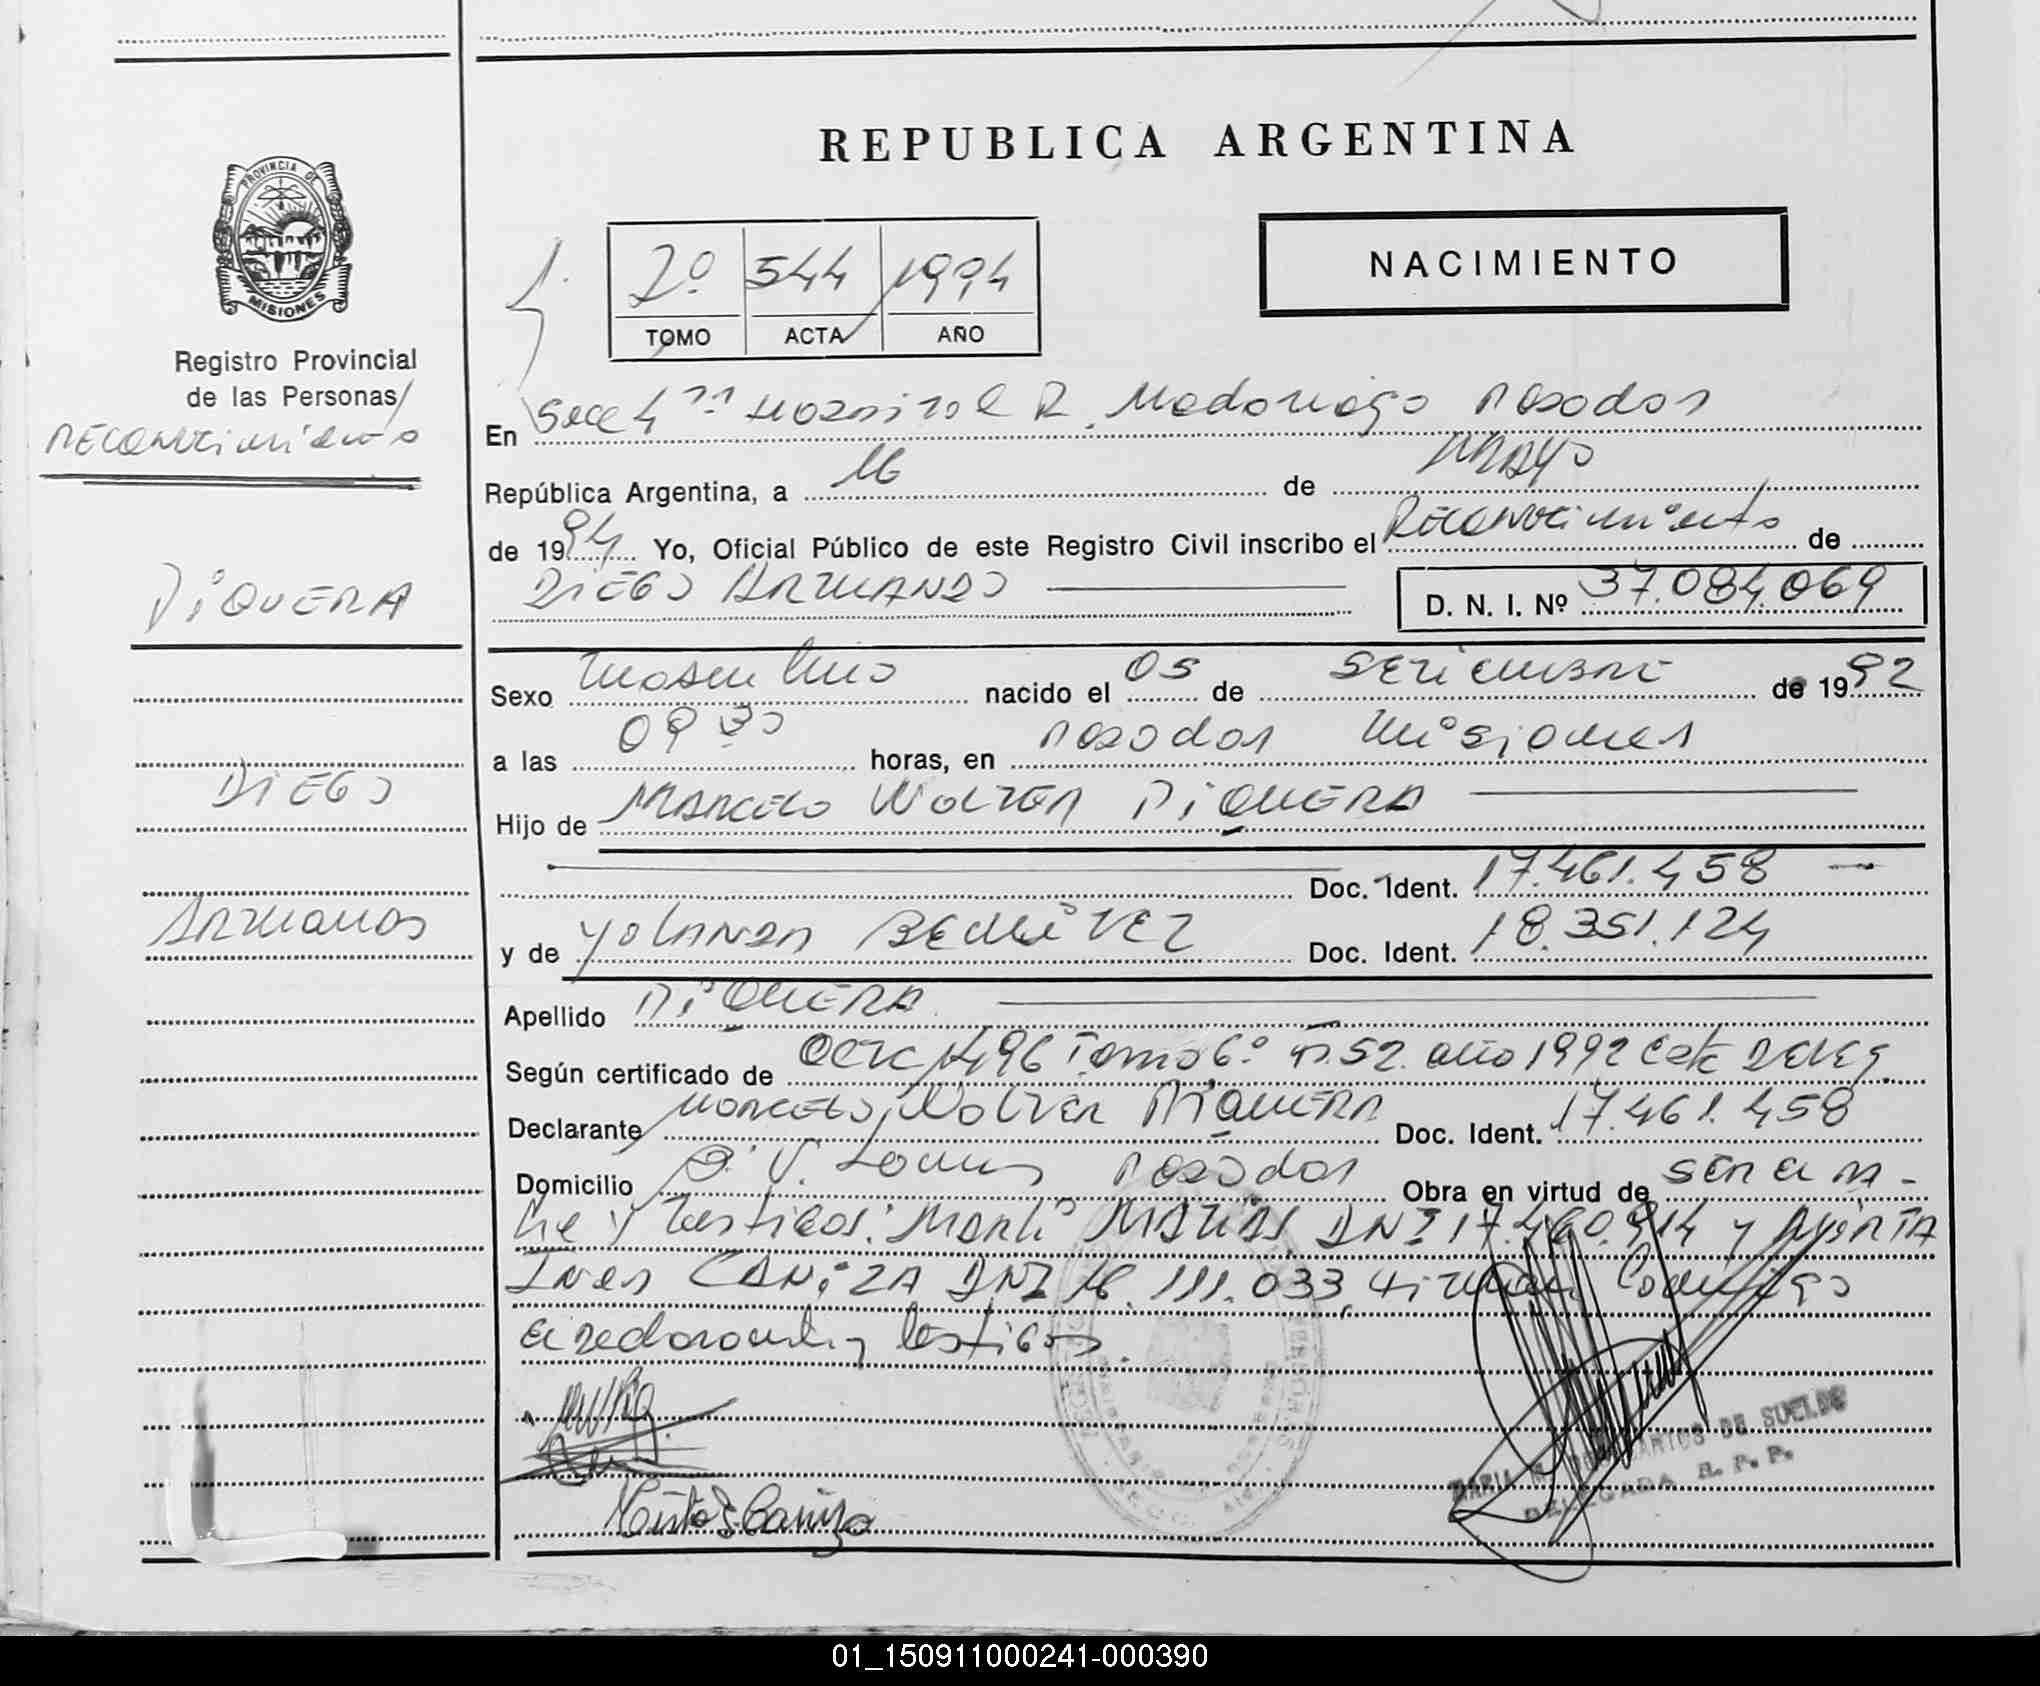 REPUBLICA ARGENTINA
PROVINCIA DE
MISIONES
Registro Provincial
de las Personas
RECONOCIMIENTO
PIQUERA
DIEGO
ARMANDO
2º 544 1994
TOMO ACTA AÑO
NACIMIENTO
En Secc 4 Hospital R. Madariaga Posadas
República Argentina, a 16 de MAYO
de 1994 Yo, Oficial Público de este Registro Civil inscribo el Reconocimiento de
DIEGO ARMANDO D. N. I. Nº 37.084.069
Sexo Masculino nacido el 05 de SETIEMBRE de 1992
a las 09 30 horas, en Posadas Misiones
Hijo de MARCELO WALTER PIQUERA
Doc. Ident. 17.461.458
y de YOLANDA BENITEZ Doc. Ident. 18.351.124
Apellido PIQUERA
Según certificado de Acta 1496 Tomo 6º Fº 52 año 1992 esta Deleg.
Declarante MARCELO WALTER PIQUERA Doc. Ident. 17.461.458
Domicilio Posadas Obra en virtud de
y testigos: MATIAS DNI 17.460.914 y MIRTA
Ines CANIZA DNI 16.111.033, firman conmigo
el declarante y testigos.
Mirta I. Caniza
DE SUELDO
DELEGADA R. P. P.
01_150911000241-000390